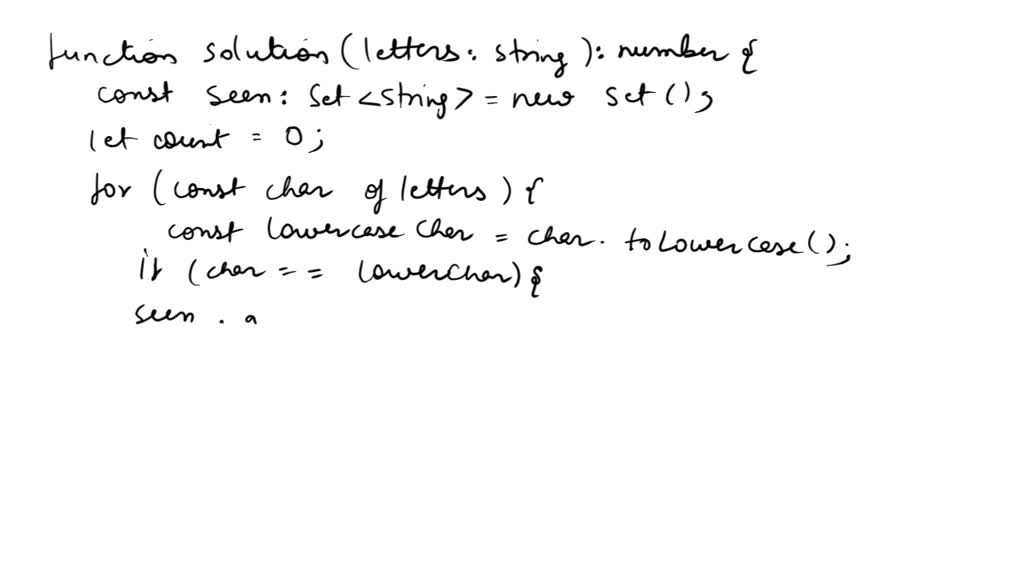 function solution (letters: string): number {
const seen: Set <string> = new set();
let count = 0;
for (const char of letters) {
const lowercase char = char. toLowercase();
if (char == lowerchar) {
seen . a